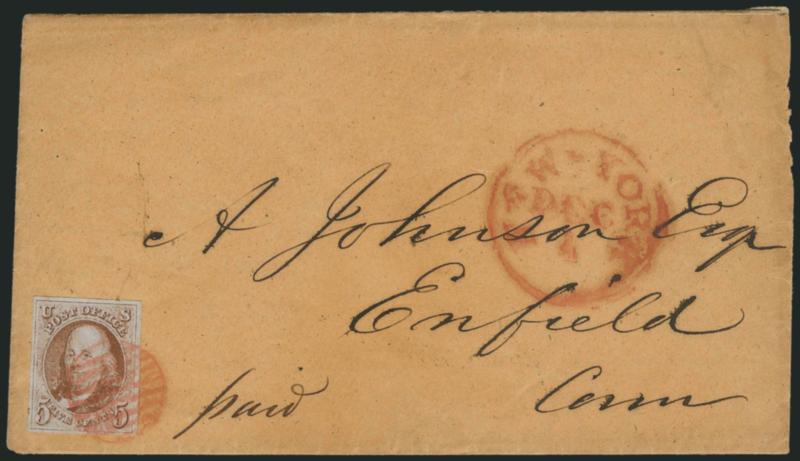 NEW-YORK
DEC
A Johnson Esq
Enfield
Conn
paid
U S
POST OFFICE
5 FIVE CENTS 5